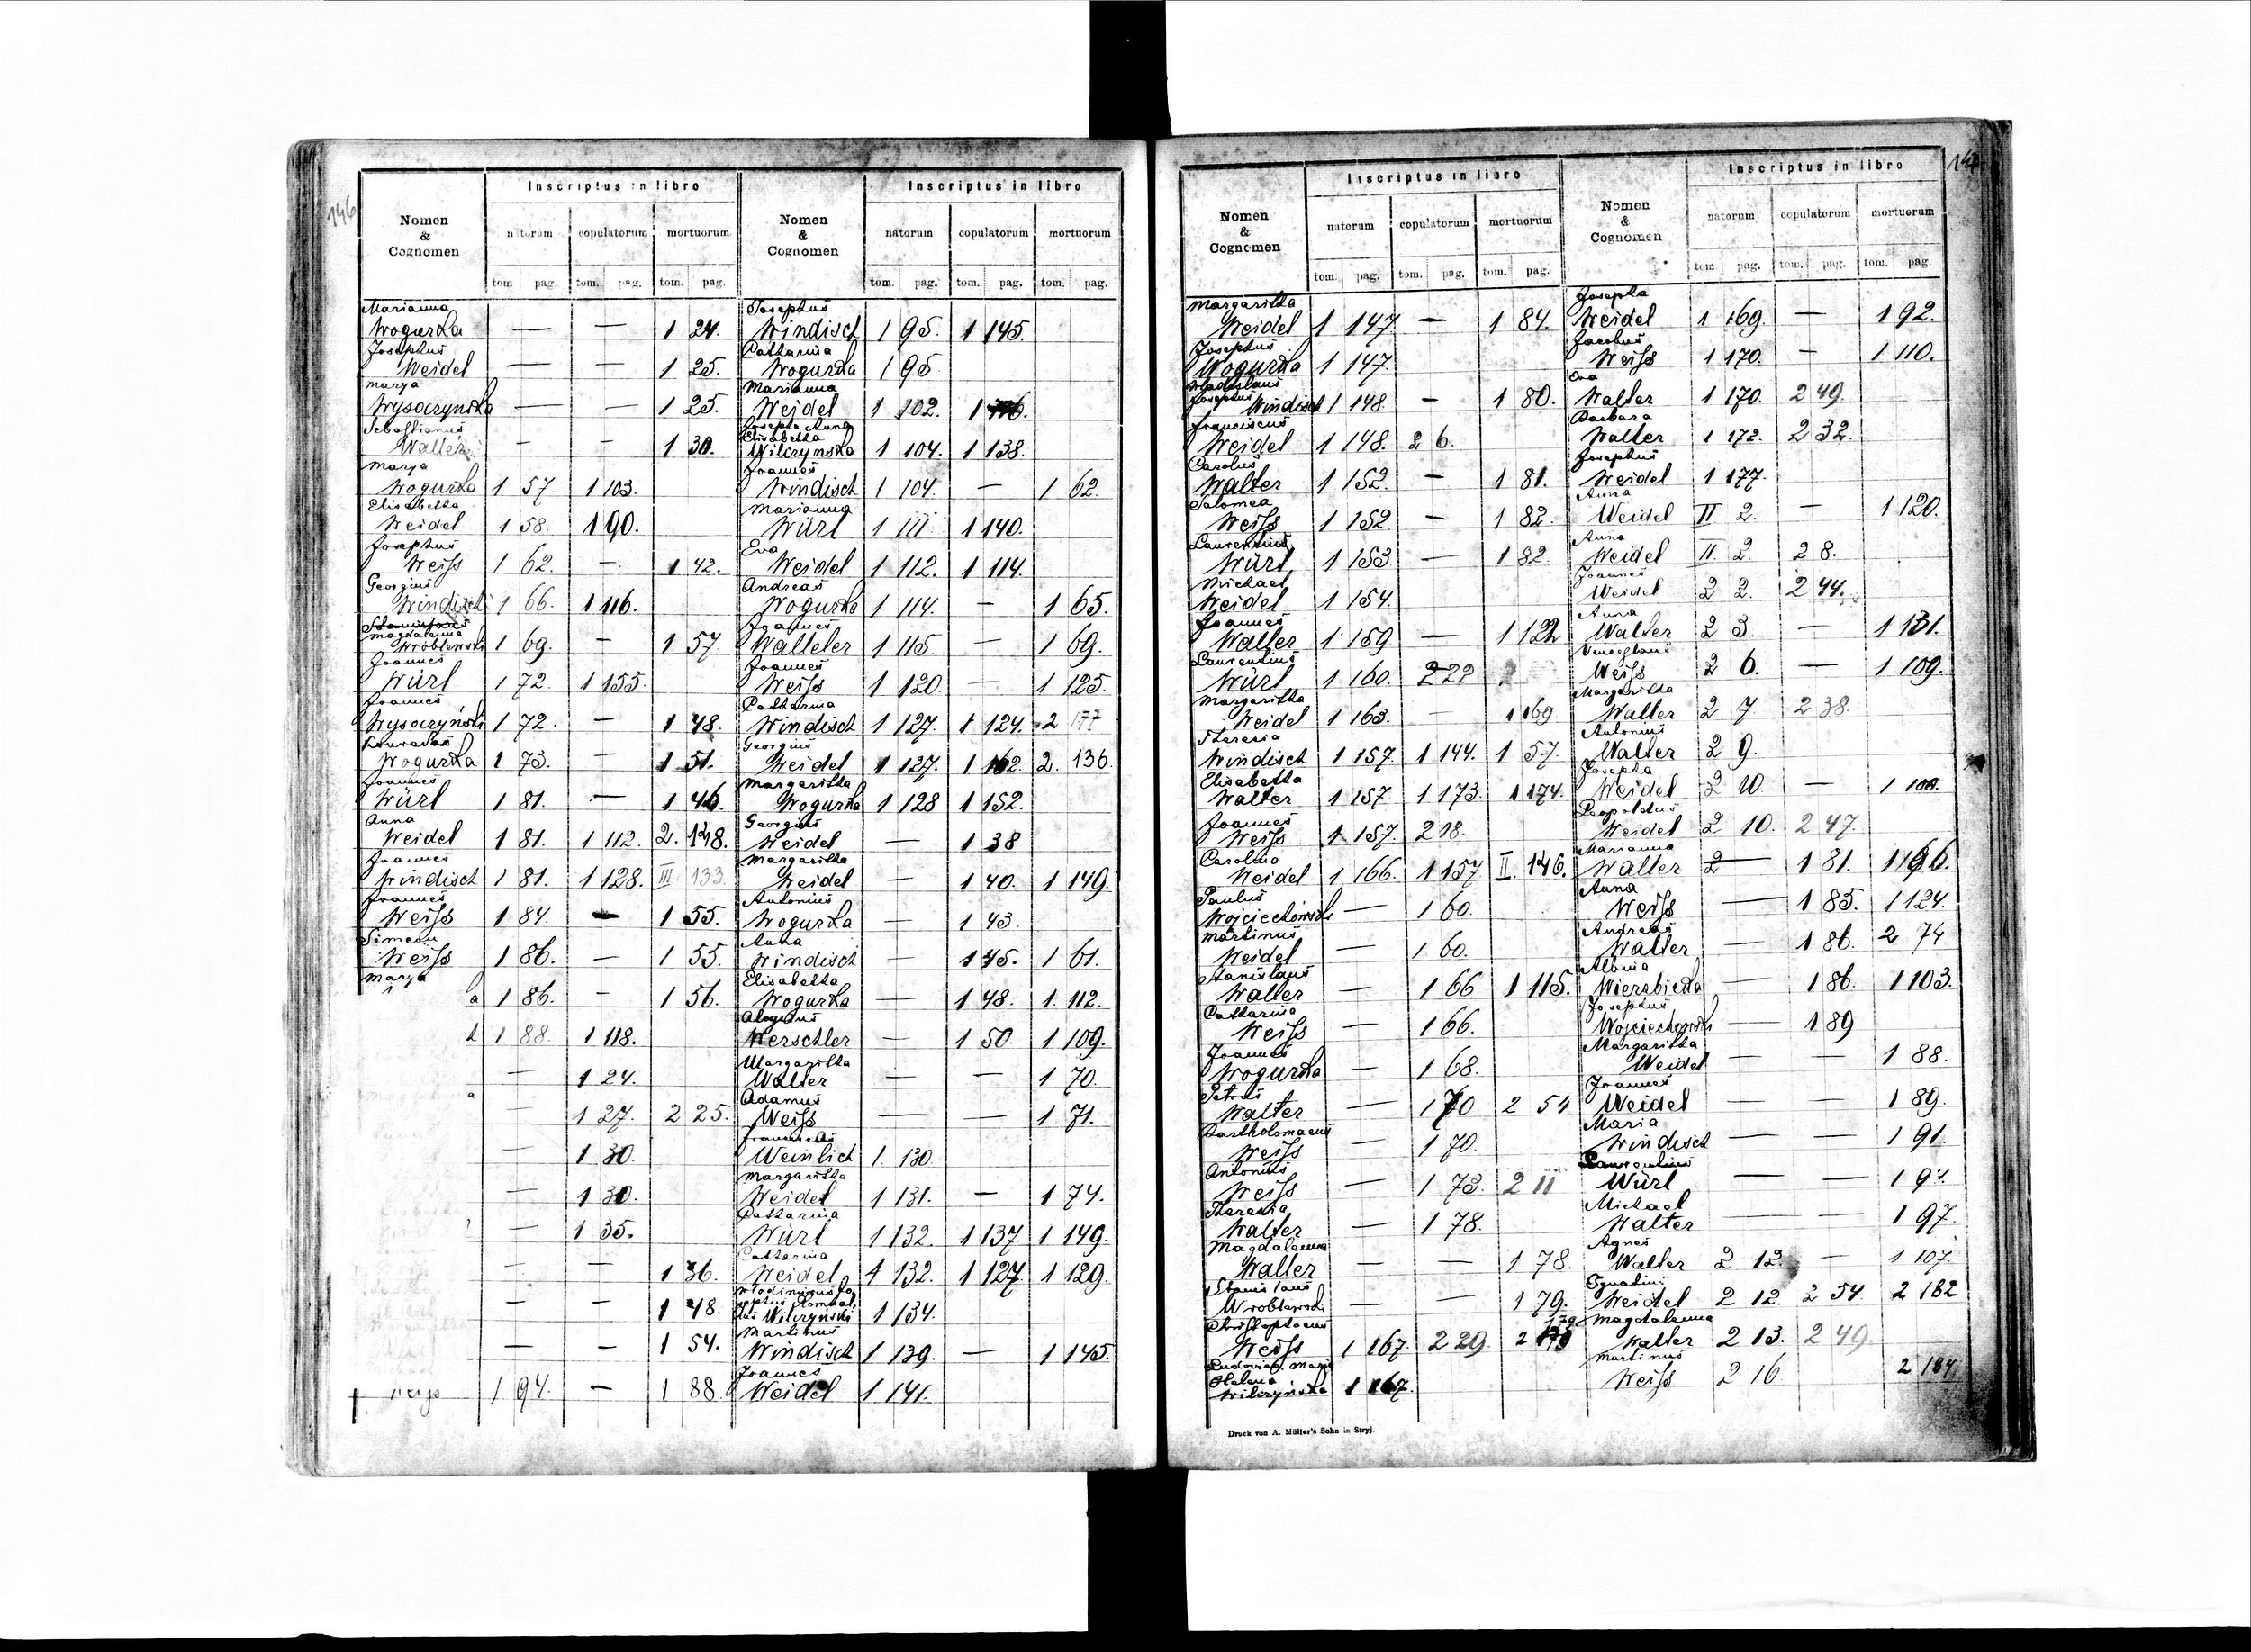 146
Inscriptus in libro
Nomen & Cognomen natorum copulatorum mortuorum
tom. pag. tom. pag. tom. pag.
Marianna
Wogurka — — 1 24.
Josephus
Weidel — — 1 25.
Marya
Wysoczynska — — 1 25.
Sebastianus
Walter — — 1 30.
Marya
Wogurka 1 57 1 103.
Elisabetha
Weidel 1 58. 1 90.
Josephus
Weiss 1 62. — 1 42.
Georgius
Windisch 1 66. 1 116.
Magdalenna
Wroblewski 1 69. — 1 57.
Joannes
Würl 1 72. 1 155.
Joannes
Wysoczyński 1 72. — 1 48.
Conradus
Wogurka 1 73. — 1 51.
Joannes
Würl 1 81. — 1 46.
Anna
Weidel 1 81. 1 112. 2. 148.
Joannes
Windisch 1 81. 1 128. III 133.
Joannes
Weiss 1 84. — 1 55.
Simeon
Weiss 1 86. — 1 55.
Marya
a 1 86. — 1 56.
1 88. 1 118.
— 1 24.
a
— 1 27. 2 25.
— 1 30.
— 1 30.
— 1 35.
— — 1 36.
— — 1 48.
— — 1 54.
1 94. — 1 88.
Inscriptus in libro
Nomen & Cognomen natorum copulatorum mortuorum
tom. pag. tom. pag. tom. pag.
Josephus
Windisch 1 95. 1 145.
Catharina
Wogurka 1 95.
Marianna
Weidel 1 102.
Josepha Anna
Elisabetha
Wilczynska 1 104. 1 138.
Joannes
Windisch 1 104. — 1 62.
Marianna
Würl 1 111. 1 140.
Eva
Weidel 1 112. 1 114.
Andreas
Wogurka 1 114. — 1 65.
Joannes
Walteler 1 115. — 1 69.
Joannes
Weiss 1 120. — 1 125.
Catharina
Windisch 1 127. 1 124. 2 177
Georgius
Weidel 1 127. 1 162 2. 136.
Margaritha
Wogurka 1 128 1 152.
Georgius
Weidel — 1 38
Margaritha
Weidel — 1 40. 1 149.
Antonius
Wogurka — 1 43.
Anna
Windisch — 1 45. 1 61.
Elisabetha
Wogurka — 1 48. 1. 112.
Aloysius
Werschler — 1 50. 1 109.
Margaritha
Walter — — 1 70.
Adamus
Weiss — — 1 71.
Weinlich 1. 130.
Margaritha
Weidel 1 131. — 1 74.
Catharina
Würl 1 132. 1 137. 1 149.
Catharina
Weidel 1 132. 1 127. 1 129.
Wilczyński 1 134.
Martinus
Windisch 1 139. — 1 145.
Joannes
Weidel 1 141.
Inscriptus in libro
Nomen & Cognomen natorum copulatorum mortuorum
tom. pag. tom. pag. tom. pag.
Margaritha
Weidel 1 147 — 1 84.
Josephus
Wogurka 1 147.
Wladislaus
Josephus
Windisch 1 148. — 1 80.
Franciscus
Weidel 1 148. 2 6.
Carolus
Walter 1 152. — 1 81.
Salomea
Weiss 1 152 — 1 82.
Laurentius
Würl 1 153 — 1 82.
Michael
Weidel 1 154.
Joannes
Walter 1 159 — 1 122
Laurentius
Würl 1 160. 2 22
Margaritha
Weidel 1 163. — 1 169
Theresia
Windisch 1 157. 1 144. 1 57.
Elisabetha
Walter 1 157. 1 173. 1 174.
Joannes
Weiss 1 157. 2 18.
Carolina
Weidel 1 166. 1 157 II. 146.
Paulus
Wojciechowski — 1 60.
Martinus
Weidel — 1 60.
Stanislaus
Walter — 1 66 1 115.
Catharina
Weiss — 1 66.
Joannes
Wogurka — 1 68.
Petrus
Walter — 1 70 2 54
Bartholomaeus
Weiss — 1 70.
Antonius
Weiss — 1 73. 2 11
Theresia
Walter — 1 78.
Magdalenna
Walter — — 1 78.
Stanislaus
Wroblewski — — 1 79.
Christophorus
Weiss 1 167. 2 29.
Ludovica Maria
Helena
Wilczyńska 1 167.
Inscriptus in libro
Nomen & Cognomen natorum copulatorum mortuorum
tom. pag. tom. pag. tom. pag.
Josepha
Weidel 1 169. — 1 92.
Jacobus
Weiss 1 170. — 1 110.
Eva
Walter 1 170. 2 49.
Barbara
Walter 1 172. 2 32.
Josephus
Weidel 1 177.
Anna
Weidel II 2. — 1 120.
Anna
Weidel II 2. 2 8.
Joannes
Weidel 2 2. 2 44.
Anna
Walter 2 3. — 1 131.
Venceslaus
Weiss 2 6. — 1 109.
Margaritha
Walter 2 7 2 38.
Antonius
Walter 2 9.
Josepha
Weidel 2 10. — 1 100.
Leopoldus
Weidel 2 10. 2 47.
Marianna
Walter 2 — 1 81. 1 196.
Anna
Weiss — 1 85. 1 124.
Andreas
Walter — 1 86. 2 74
Albina
Wierzbicka — 1 86. 1 103.
Josephus
Wojciechowski — 1 89
Margaritha
Weidel — — 1 88.
Joannes
Weidel — — 1 89.
Maria
Windisch — — 1 91.
Laurentius
Würl — — 1 94.
Michael
Walter — — 1 97.
Agnes
Walter 2 12. — 1 107.
Ignatius
Weidel 2 12. 2 54. 2 182
Magdalenna
Walter 2 13. 2 49.
Martinus
Weiss 2 16 2 184
Druck von A. Müller's Sohn in Stryj.